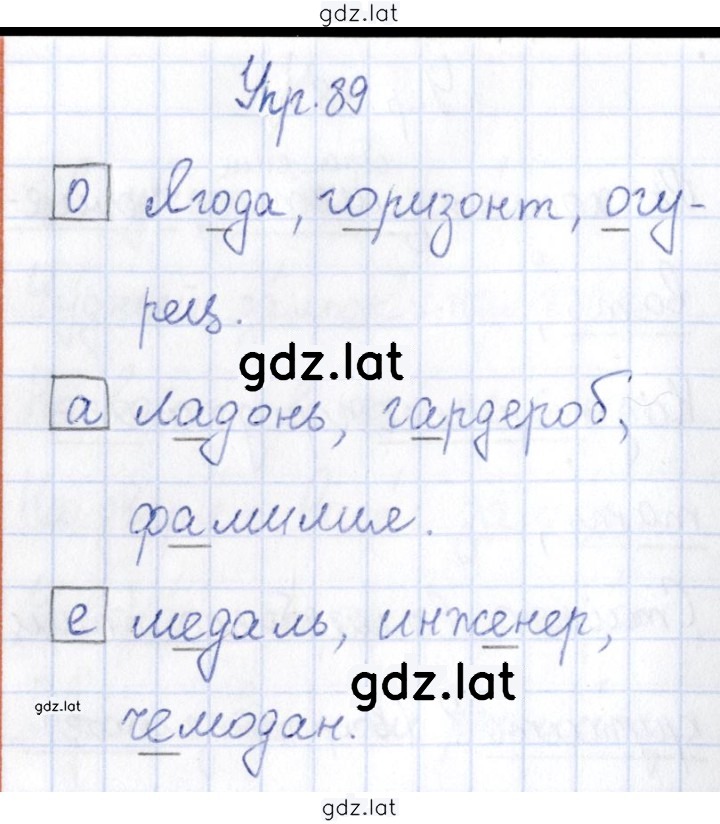 gdz.lat
Упр. 89
о Ягода, горизонт, огу-
рец.
gdz.lat
а ладонь, гардероб,
фамилия.
е медаль, инженер,
gdz.lat
gdz.lat
чемодан.
gdz.lat